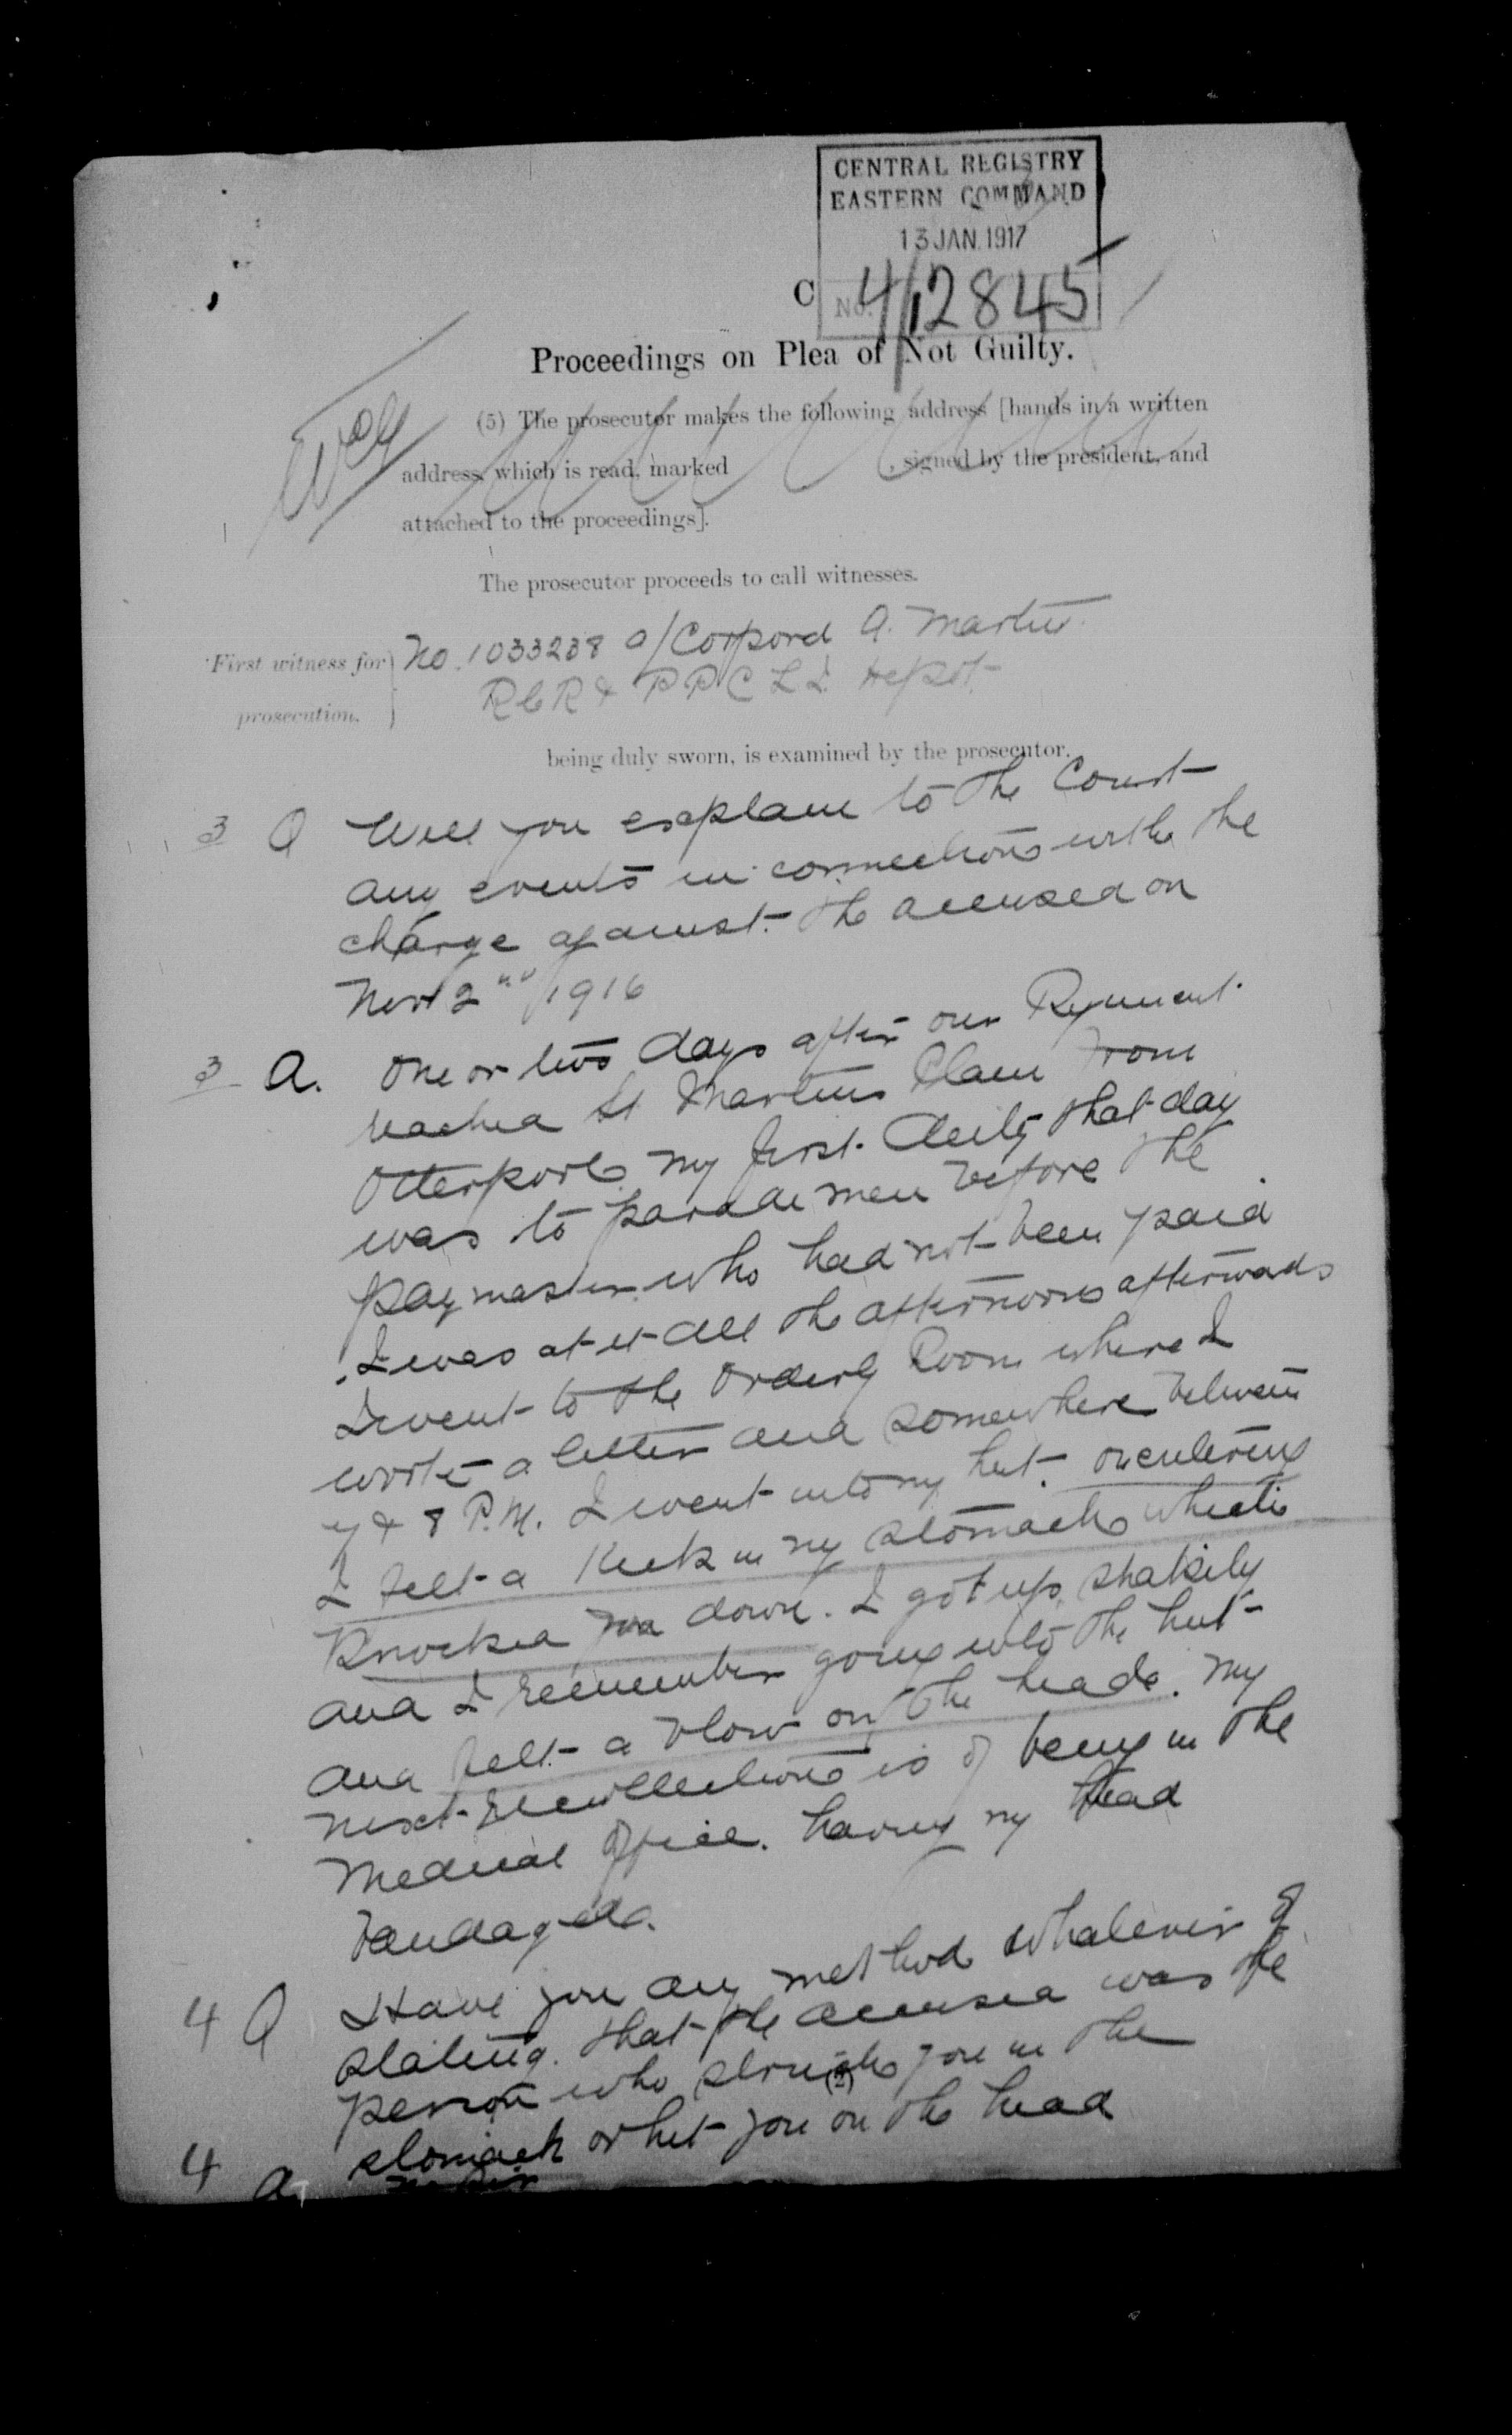 CENTRAL REGISTRY
EASTERN COMMAND
13 JAN. 1917
C No. 4/12845
Proceedings on Plea of Not Guilty.
(5) The prosecutor makes the following address [hands in a written
address, which is read, marked , signed by the president, and
attached to the proceedings].
The prosecutor proceeds to call witnesses.
First witness for prosecution.
No. 1033238 a/Corporal A. Martin
RCR & PPCLI Depot.
being duly sworn, is examined by the prosecutor.
3 Q Will you explain to the Court
any events in connection with the
charge against the accused on
Nov 2nd 1916
3 A. One or two days after our Regiment
reached St Martins Plain from
Otterpool my first duty that day
was to parade men before the
paymaster who had not been paid
I was at it all the afternoon afterwards
I went to the Orderly Room where I
wrote a letter and somewhere between
7 & 8 P.M. I went into my hut. on entering
I felt a kick in my stomach which
knocked me down. I got up shakily
and I remember going into the hut
and felt a blow on the head. My
next recollection is of being in the
Medical Office. having my head
bandaged.
4 Q Have you any method whatever of
stating that the accused was the
person who struck you in the
(2)
stomach or hit you on the head
4 A. no Sir